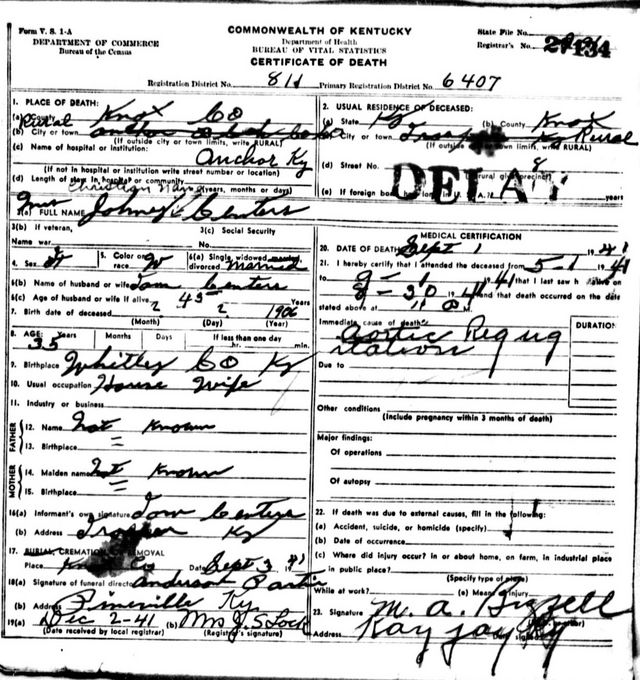 Form V. S. 1-A
DEPARTMENT OF COMMERCE
Bureau of the Census
COMMONWEALTH OF KENTUCKY
Department of Health
BUREAU OF VITAL STATISTICS
CERTIFICATE OF DEATH
State File No.
Registrar's No.
Registration District No. 811 Primary Registration District No. 6407
1. PLACE OF DEATH:
(a) County Knox Co
Rural
(b) City or town
(If outside city or town limits, write RURAL)
(c) Name of hospital or institution:
Anchor Ky
(If not in hospital or institution write street number or location)
(d) Length of stay in hospital or community
(years, months or days)
2. USUAL RESIDENCE OF DECEASED:
(a) State Ky (b) County Knox
(c) City or town Ky Rural
(If outside city or town limits, write RURAL)
(d) Street No.
(If rural give precinct)
DELAY
(e) If foreign born, how long in U. S. A.? years
Christian Name
Mrs
3(a) FULL NAME Johney Centers
3(b) If veteran, 3(c) Social Security
Name war No.
4. Sex 5. Color or race W 6(a) Single, widowed, married, divorced married
6(b) Name of husband or wife Tom Centers
6(c) Age of husband or wife if alive 45 Years
7. Birth date of deceased 2 2 1906
(Month) (Day) (Year)
8. AGE: Years Months Days If less than one day
35 hr. min.
9. Birthplace Whitley CO Ky
10. Usual occupation House Wife
11. Industry or business
FATHER
12. Name Not Known
13. Birthplace =
MOTHER
14. Maiden name Not Known
15. Birthplace =
16(a) Informant's own signature Tom Centers
(b) Address Ky
17. BURIAL, CREMATION OR REMOVAL
Place Knox Co Date Sept 3 1941
18(a) Signature of funeral director Anderson
(b) Address Pineville Ky
19(a) Dec 2-41 (b) Mrs J. S. Lock
(Date received by local registrar) (Registrar's signature)
MEDICAL CERTIFICATION
20. DATE OF DEATH Sept 1 1941
21. I hereby certify that I attended the deceased from 5-1 1941
to 9-1 1941 that I last saw h alive on
8-30 1941 and that death occurred on the date
stated above at M.
Immediate cause of death Aortic Regurg
itation
DURATION
Due to
Other conditions
(Include pregnancy within 3 months of death)
Major findings:
Of operations
Of autopsy
22. If death was due to external causes, fill in the following:
(a) Accident, suicide, or homicide (specify)
(b) Date of occurrence
(c) Where did injury occur? in or about home, on farm, in industrial place
in public place?
(Specify type of place)
While at work? (e) Means of injury
23. Signature M. A. Bizzell
Address Kay Jay Ky